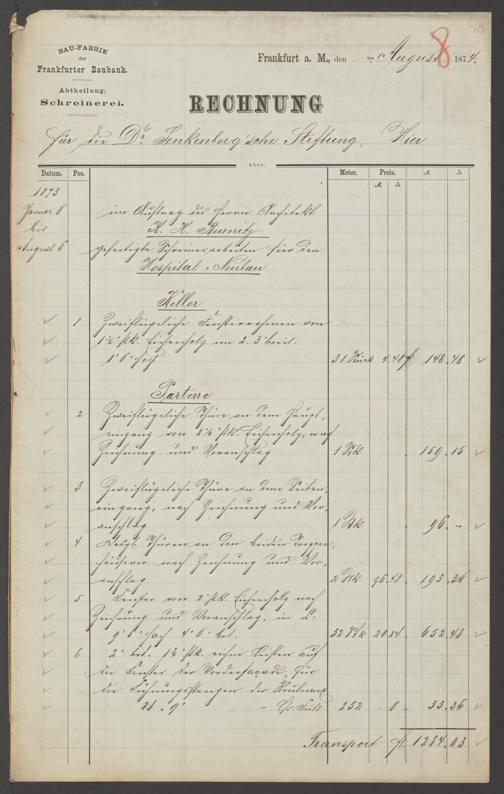 BAU-FABRIK
der
Frankfurter Baubank.
Abtheilung:
Schreinerei.
Frankfurt a. M., den August 1874.
8
RECHNUNG
für die Dr. Senkenberg'sche Stiftung, Hier
über:
Datum. Pos. Meter. Preis.
1873
Januar 6 im Auftrag des Herrn Architekt
bis K. H. Burnitz
August 6 gefertigte Schreinerarbeiten für den
Hospital-Neubau
Keller
1 Zweiflügliche Fensterrahmen von
1½" stk. Eichenholz im L. 3' breit.
1'6" hoch 31 Stück 4.48 148.48
Parterre
2 Zweiflügeliche Thüre an dem Haupt-
eingang von 2½" stk. Eichenholz, nach
Zeichnung und Voranschlag 1 Stk 159.05
3 Zweiflügeliche Thüre an dem Seiten-
eingang, nach Zeichnung und Vor-
anschlag 1 Stk 96.„
4 Thüren an den beiden
nach Zeichnung und Vor-
anschlag 2 Stk 193.26
5 Fenster von 2" stk. Eichenholz nach
Zeichnung und Voranschlag, im L.
hoch 4'6" brt. 32 Stk 652.48
6 2" brt. 1½" stk. Leisten auf
die Fenster der Vorderfacade, für
die Führungsstangen der
252 8 33.36
Transport 1284.03